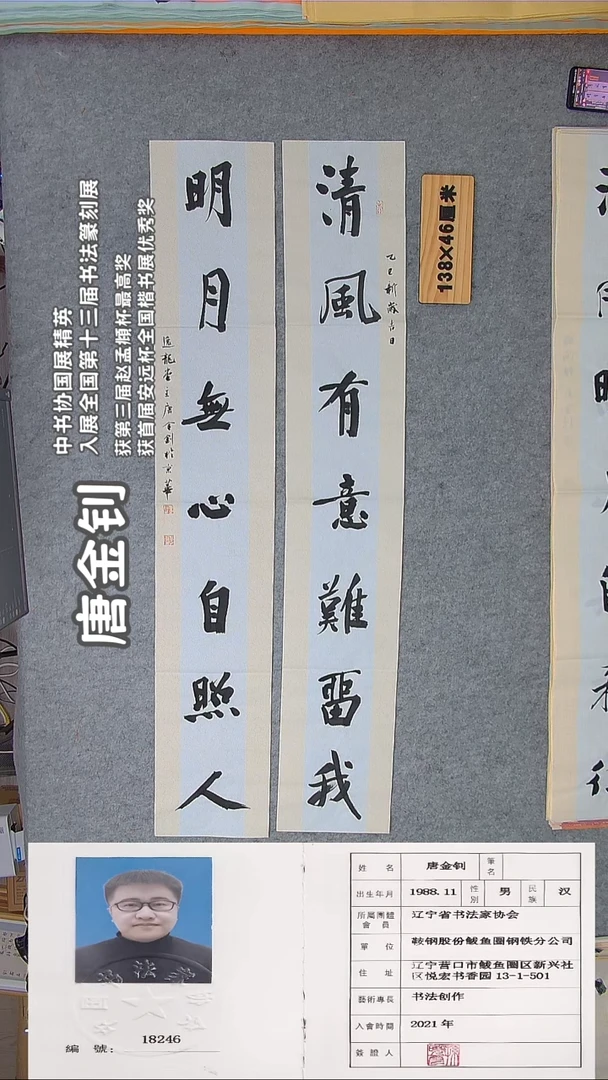 清風有意難畱我
乙巳新歲吉日
明月無心自照人
唐金釗於京華
138×46厘米
唐金钊
中书协国展精英
入展全国第十三届书法篆刻展
获第三届赵孟頫杯最高奖
获首届安远杯全国楷书展优秀奖
編 號: 18246
姓 名 唐金钊 筆名
出生年月 1988.11 性別 男 民族 汉
所屬團體會員 辽宁省书法家协会
單 位 鞍钢股份鲅鱼圈钢铁分公司
住 址 辽宁营口市鲅鱼圈区新兴社
区悦宏书香园 13-1-501
藝術專長 书法创作
入會時間 2021 年
簽 證 人